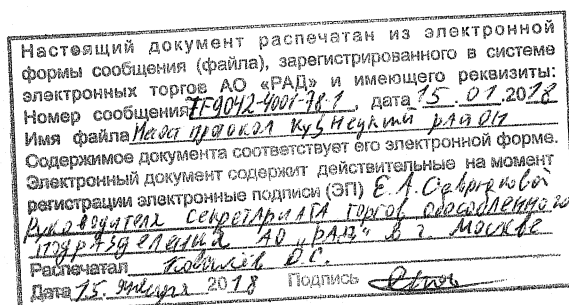 Настоящий документ распечатан из электронной
формы сообщения (файла), зарегистрированного в системе
электронных торгов АО «РАД» и имеющего реквизиты:
Номер сообщения 7F9042-4001-78-1, дата 15.01.2018
Имя файла протокол Кузнецкий район
Содержимое документа соответствует его электронной форме.
Электронный документ содержит действительные на момент
регистрации электронные подписи (ЭП) Е.А.
Руководителя секретариата торгов обособленного
подразделения АО „РАД" в г. Москве
Распечатал Ковалёв
Дата 15. января 2018 Подпись